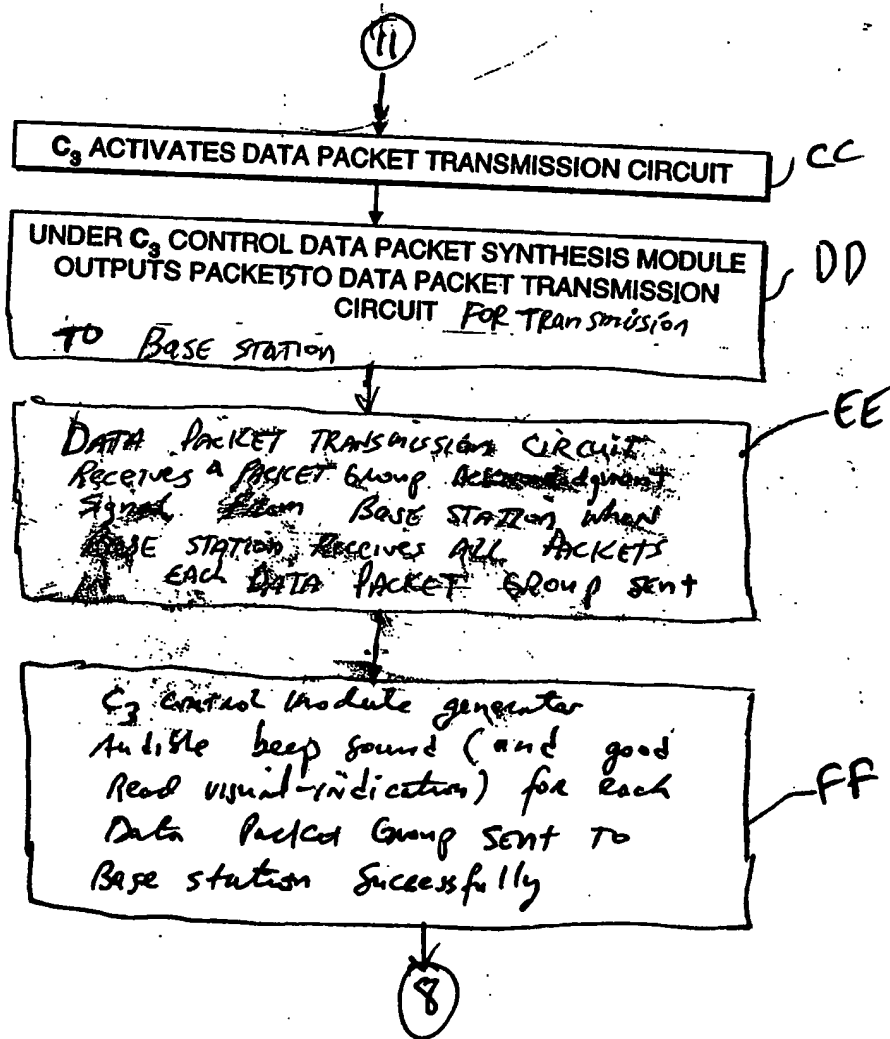 11
C₃ ACTIVATES DATA PACKET TRANSMISSION CIRCUIT
CC
UNDER C₃ CONTROL DATA PACKET SYNTHESIS MODULE
OUTPUTS PACKETS TO DATA PACKET TRANSMISSION
CIRCUIT FOR TRANSMISSION
TO BASE STATION
DD
DATA PACKET TRANSMISSION CIRCUIT
Receives a PACKET Group
Signal From BASE STATION when
BASE STATION Receives ALL PACKETS
EACH DATA PACKET GROUP Sent
EE
C₃ control module generator
Audible beep sound (and good
Read visual-indication) for each
Data Packet Group SENT TO
Base station Successfully
FF
8